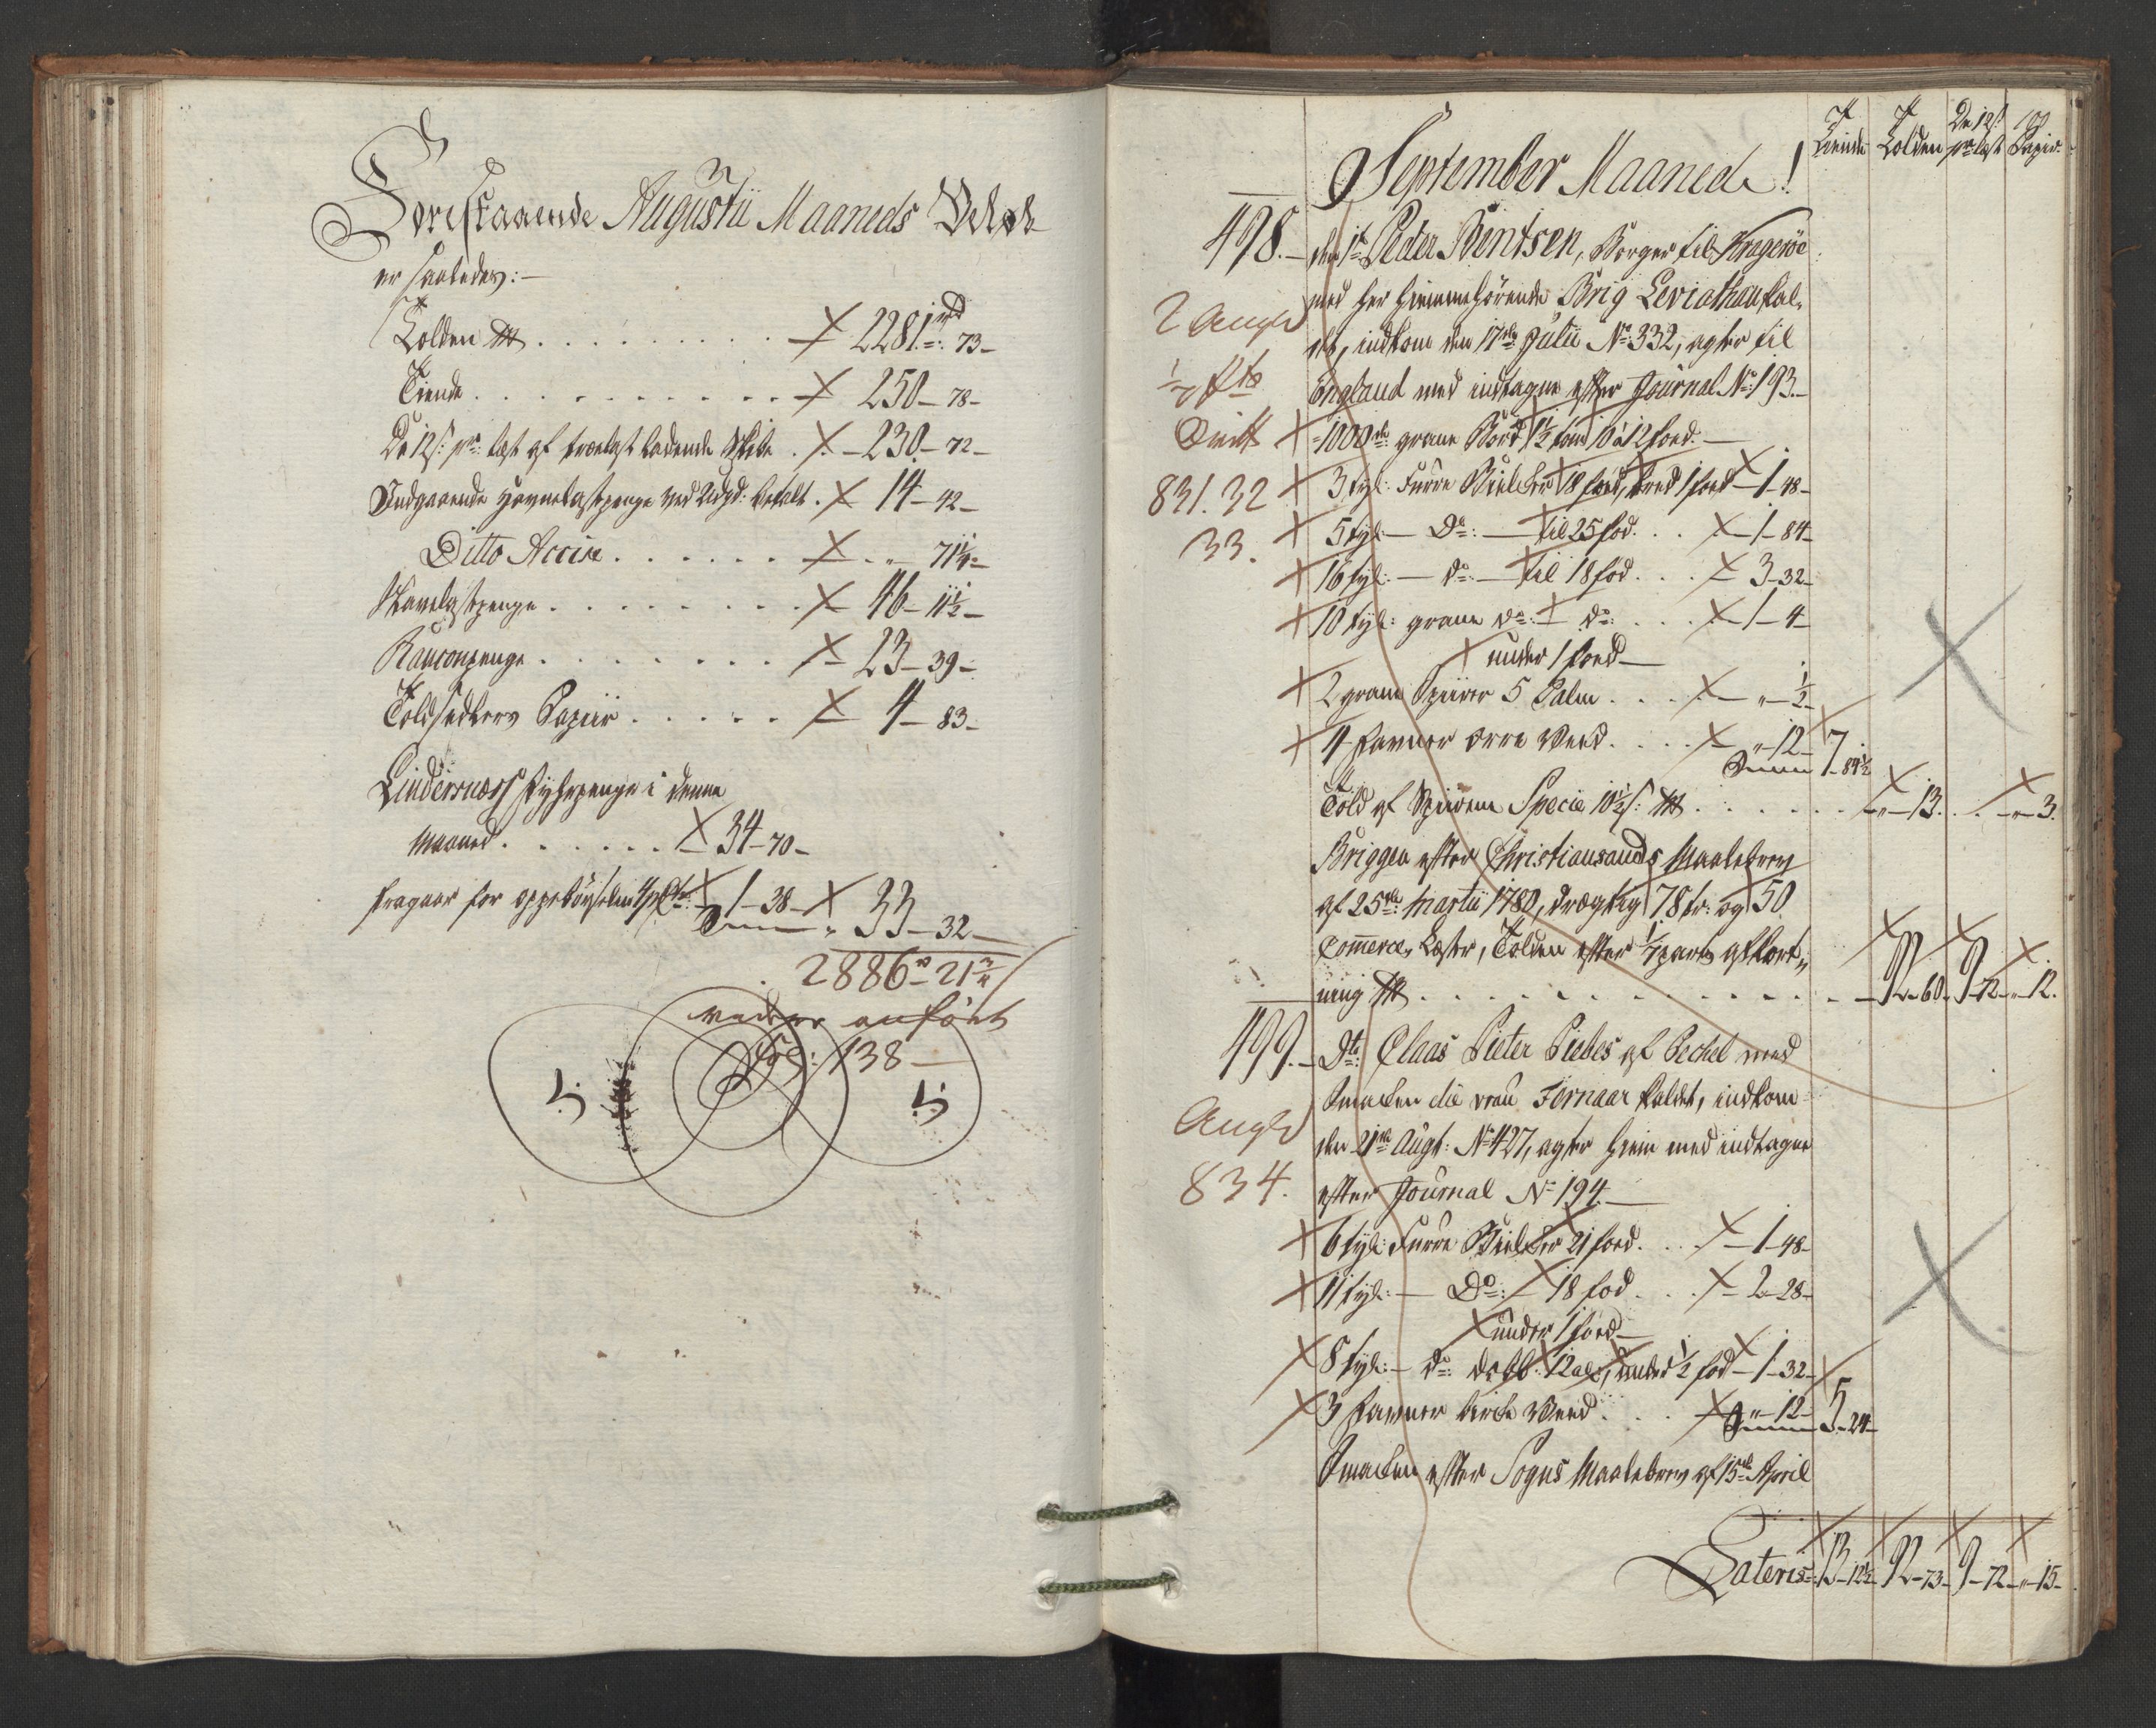 Forestaaende Augustii Maaneds Beløb
er saaledes:—
Tolden . . . . . . . . . 2281 rd 73–
Tiende . . . . . . . . . . . 250– 78–
De 12 s: pr: læst af trælast ladende Skibe . . – 230– 72–
Indgaaende Havnelastpenge ved Udgd: betalt . 14– 42–
Ditto Accise . . . . . . . „ 71 1/4–
Havnelastpenge . . . . . . . . 46– 11 1/2–
Rançonpenge . . . . . . . 23– 39–
Toldsedlers Papiir . . . . . 4– 83–
Lindersnæss fyhrpenge i denne
Maaned . . . . . . 34–70–
fragaar for oppebørselen 4 pCt: 1–38– 33–32–
2886 rd– 21 3/4
videre anført
Fol: 138—
Tiende
Tolden
De 12 s: pr: læst
Papiir.
September Maaned!
498.– den 1te Peder Bentsen, Borger til Kragerøe
med her hiemmehørende Brig Leviathan kal„
2 Angl
det, indkom den 17de Julii No: 332, agter til
England med indtagne efter Journal No: 193.–
Qvitt
1000de grane Bord 1 1/2 tom 10 à 12 foed.—
831. 32
3 tyl: Furre Bielker 18 foed, bred 1 foed – 1–48–
33.
5 tyl:— Do:— til 25 fod. . . – 1–84–
16 tyl:— do:— til 18 fod . . . 3–32–
10 tyl: grane do: do: . . . 1–4–
under 1 foed—
2 grane Spiirer 5 Palm . . . . „– 1/2–
4 favner orre Veed . . . . „–12–
Summa 7–84 1/2
Told af Spirene Specie 10 1/2 s: . . . . . „–13. . . „–3.
Briggen efter Christiansands Maalebrev
af 25de Martii 1780, drægtig 78 tr: og 50
Commerce Læster, Tolden efter 1/7 parts afkort„
ning . . . . . . . . . . . . 92–60. 9–72– „–12.
499.– Dto: Claas Pieter Piebes af Pechel med
Smakken die vrau Fornaar kaldet, indkom
Angl
den 21de Augt: No 427, agter hiem med indtagne
834.
efter Journal No 194.—
6 tyl: Furre Bielker 21 foed. . . – 1–48–
11 tyl:— Do:— 18 fod . . . 2–28–
under 1 foed—
8 tyl:— do: dobb: 12 al:, under 1/2 fod – 1–32–
3 favner birke Veed . . . „–12–
Summa 5–24–
Smakken efter Sognes Maalebrev af 15de April
Lateris: 13–12 1/2 92–73– 9–72– „–15–